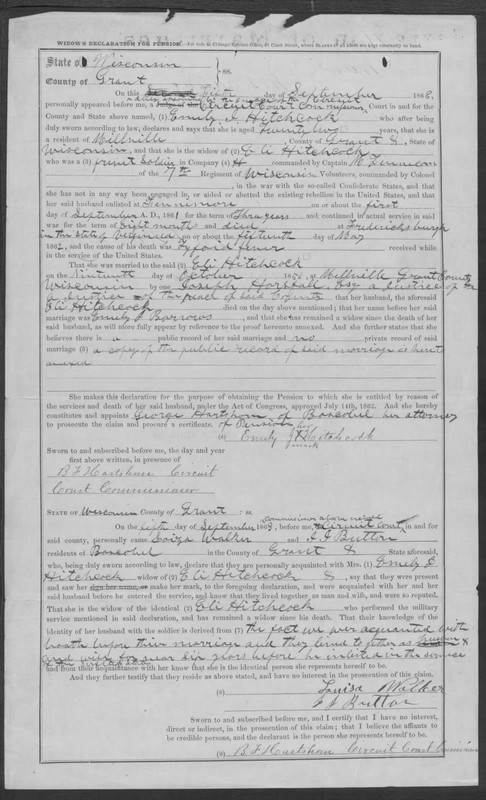 WIDOW'S DECLARATION FOR PENSION.
State of Wisconsin
County of Grant } ss.
On this fifth day of September 186
personally appeared before me, a Circuit Court Commissioner Court in and for the
County and State above named, (1) Emily J. Hitchcock who after being
duly sworn according to law, declares and says that she is aged twenty two years, that she is
a resident of Millville, County of Grant &, State of
Wisconsin, and that she is the widow of (2) Eli Hitchcock
who was a (3) privet Soldier in Company (4) H commanded by Captain M.
of the 7th Regiment of Wisconsin Volunteers, commanded by Colonel
, in the war with the so-called Confederate States, and that
she has not in any way been engaged in, or aided or abetted the existing rebellion in the United States, and that
her said husband enlisted at Fennimore on or about the first
day of September A. D., 1861 for the term of Three years and continued in actual service in said
war for the term of Eight month and died at Fredericksburgh
in the State of Virginia on or about the fifteenth day of May
1862, and the cause of his death was fever received while
in the service of the United States.
That she was married to the said (2) Eli Hitchcock
on the Ninteenth day of October 185 , at Millville Grant County
Wisconsin by one Joseph Horsfall, Esq a Justice of the
a Justice of the peace of said County that her husband, the aforesaid
Eli Hitchcock died on the day above mentioned; that her name before her said
marriage was Emily J Barrows, and that she has remained a widow since the death of her
said husband, as will more fully appear by reference to the proof hereunto annexed. And she further states that she
believes there is a public record of her said marriage and no private record of said
marriage (5) a copy of the public record of said marriage is hereto
annexed
She makes this declaration for the purpose of obtaining the Pension to which she is entitled by reason of
the services and death of her said husband, under the Act of Congress, approved July 14th, 1862. And she hereby
constitutes and appoints George Hartshorn of Boscobel her attorney
to prosecute the claim and procure a certificate. of Pension
her
(6) Emily J X Hitchcock
mark
Sworn to and subscribed before me, the day and year
first above written, in presence of
B F Hartshorn Circuit
Court Commissioner
STATE OF Wisconsin COUNTY OF Grant : ss
On the fifth day of September 186 , before me, Circuit Court, in and for
said county, personally came Louiza Walker and J. J Button
residents of Boscobel in the County of Grant & State aforesaid,
who, being duly sworn according to law, declare that they are personally acquainted with Mrs. (1) Emily J.
Hitchcock widow of (2) Eli Hitchcock &, say that they were present
and saw her sign her name, or make her mark, to the foregoing declaration, and were acquainted with her and her
said husband before he entered the service, and know that they lived together as man and wife, and were so reputed.
That she is the widow of the identical (2) Eli Hitchcock who performed the military
service mentioned in said declaration, and has remained a widow since his death. That their knowledge of the
identity of her husband with the soldier is derived from (7) the fact we wer acquainted with
boath before thier marriage and they lived to gether as
and wife for near six years before he inlisted in the service
and from their acquaintance with her know that she is the identical person she represents herself to be.
And they further testify that they reside as above stated, and have no interest in the prosecution of this claim.
(8) Louisa Walker
J J Button
Sworn to and subscribed before me, and I certify that I have no interest,
direct or indirect, in the prosecution of this claim; that I believe the affiants to
be credible persons, and the declarant is the person she represents herself to be.
(9) B. F Hartshorn Circuit Court Commissioner